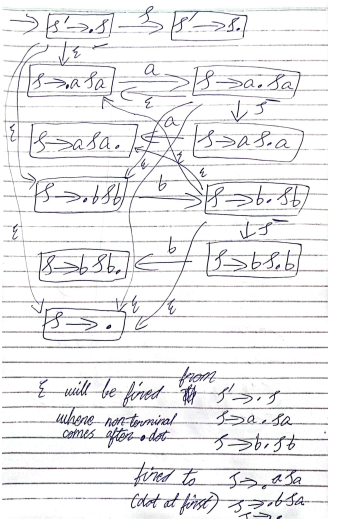 → S'→.S S S'→S.
ε
S→.aSa a S→a.Sa
ε S
S→aSa. a S→aS.a
ε ε ε ε
S→.bSb b S→b.Sb
ε S
S→bSb. b S→bS.b
ε ε
S→.
ε will be fired from S'→.S
where non-terminal S→a.Sa
comes after .dot S→b.Sb
fired to S→.aSa
(dot at first) S→.bSa
S→.